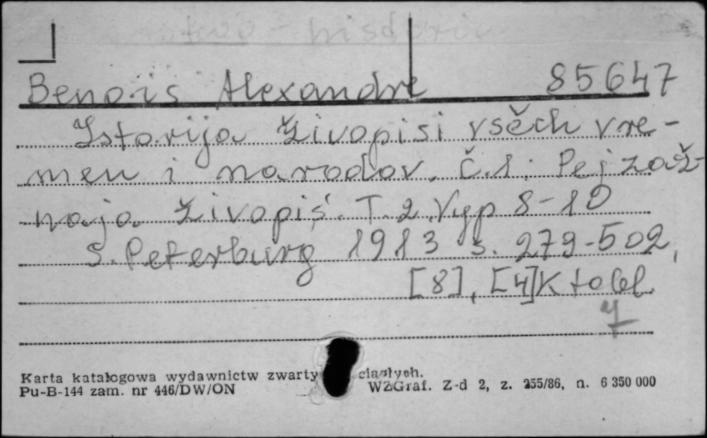 Benois Alexandre 85647
Istorija živopisi vsěch vre-
men i narodov. Č.1: Pejzaž-
naja živopiś. T. 2. Vyp 8-10
S. Peterburg 1913 s. 279-502,
[8], [4]K tabl.
7
Karta katalogowa wydawnictw zwarty ciągłych.
Pu-B-144 zam. nr 446/DW/ON WZGraf. Z-d 2, z. 255/86, n. 6 350 000